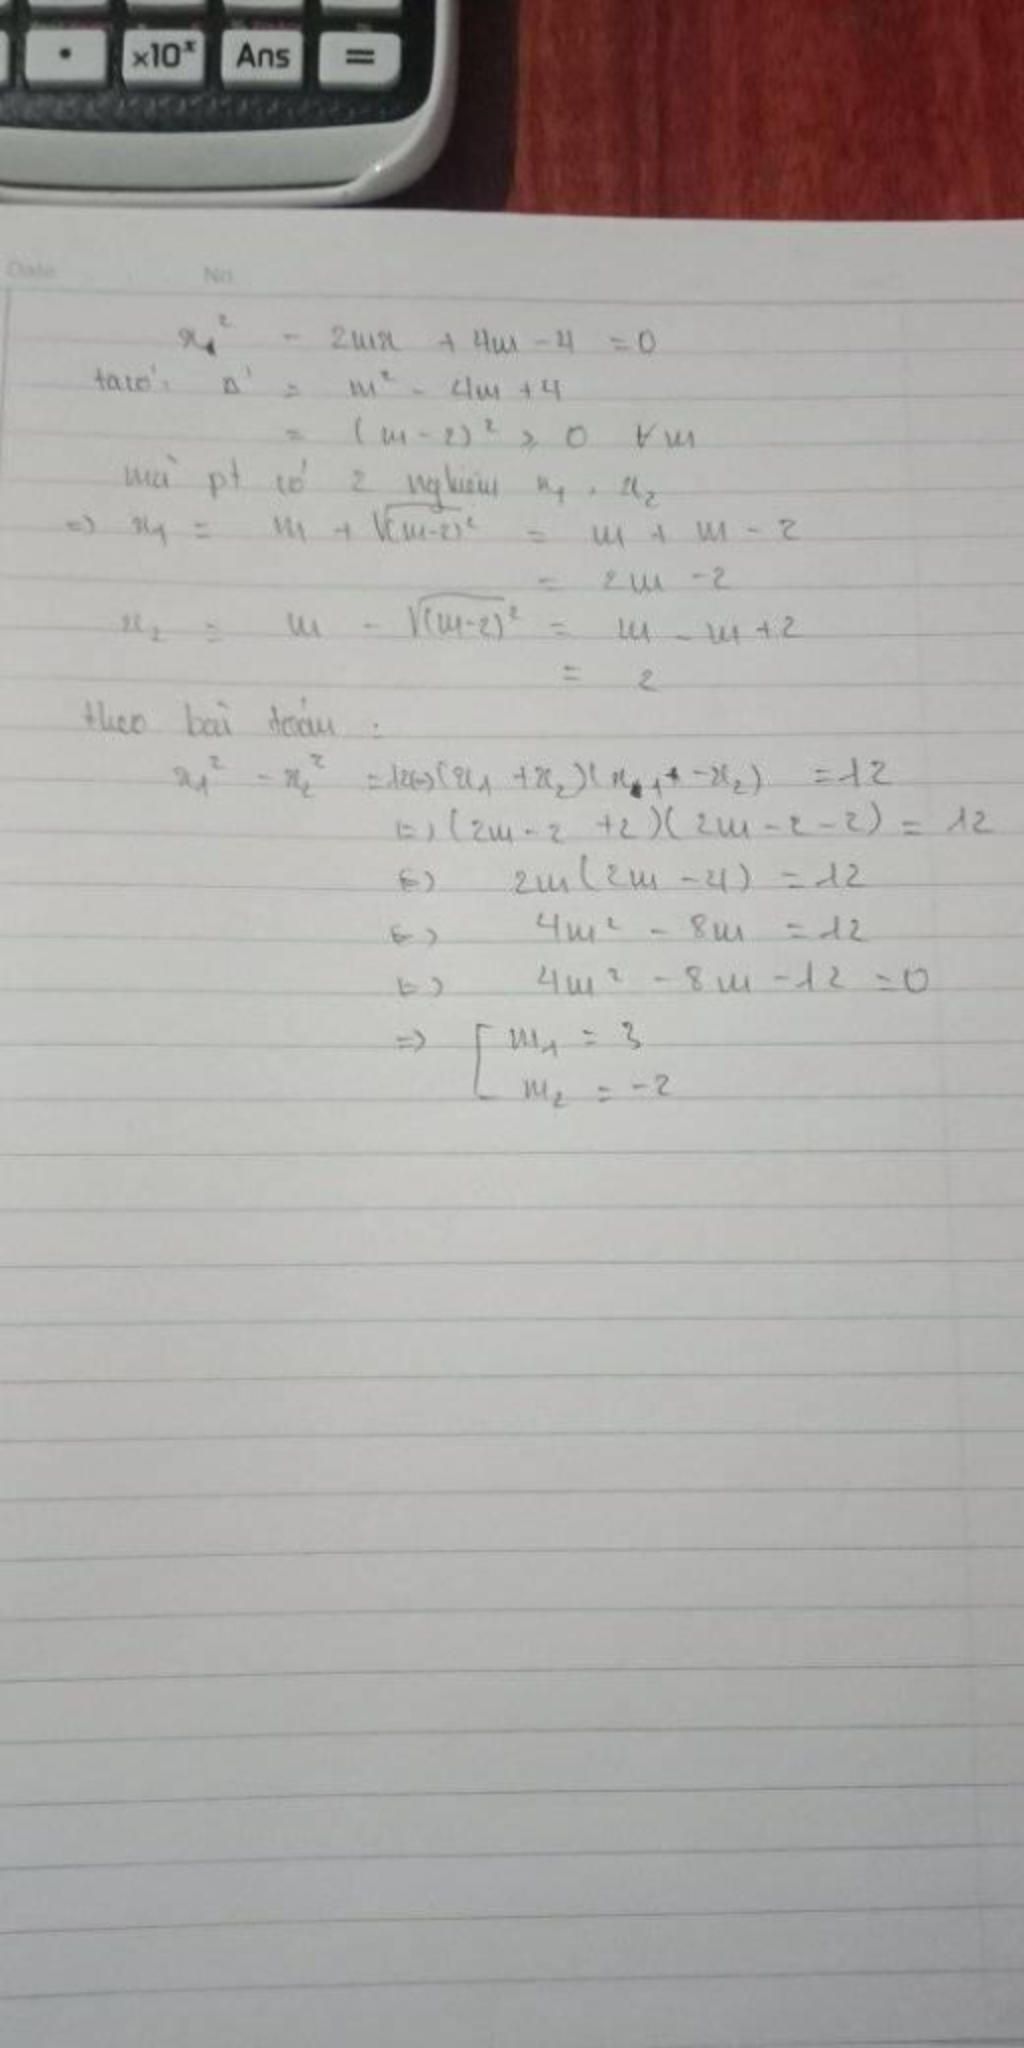 • ×10ˣ Ans =
Date No
x₁² - 2mx + 4m - 4 = 0
ta có: Δ' = m² - 4m + 4
= (m-2)² ≥ 0 ∀m
mà pt có 2 nghiệm x₁, x₂
=> x₁ = m + √(m-2)² = m + m - 2
= 2m - 2
x₂ = m - √(m-2)² = m - m + 2
= 2
theo bài toán :
x₁² - x₂² = 12 <=> (x₁ + x₂)(x₁ - x₂) = 12
<=> (2m - 2 + 2)(2m - 2 - 2) = 12
<=> 2m(2m - 4) = 12
<=> 4m² - 8m = 12
<=> 4m² - 8m - 12 = 0
=> [ m₁ = 3
m₂ = -2